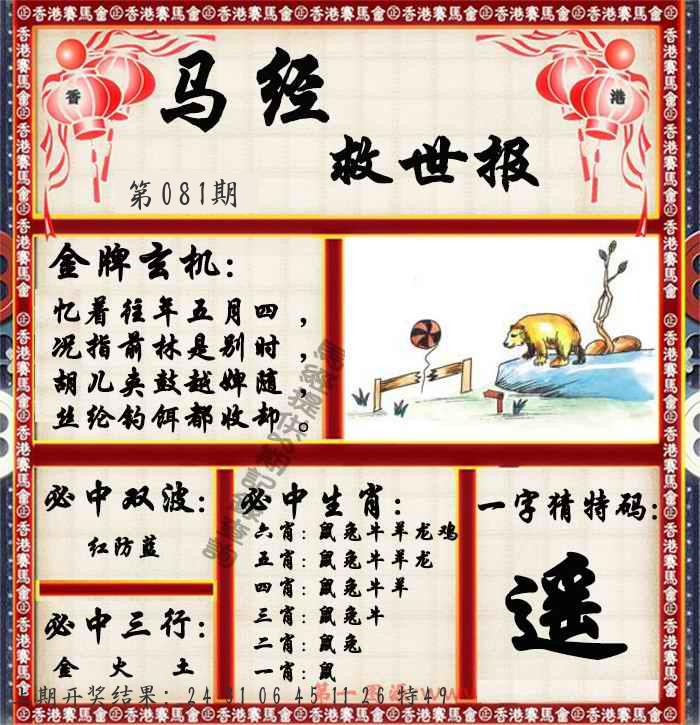 香港賽馬會
香 港
马经
救世报
第081期
金牌玄机:
忆着往年五月四，
况指前林是别时，
胡儿夹鼓越婢随，
丝纶钓饵都收却。
必中双波:
红防蓝
必中三行:
金 火 土
必中生肖:
六肖:鼠兔牛羊龙鸡
五肖:鼠兔牛羊龙
四肖:鼠兔牛羊
三肖:鼠兔牛
二肖:鼠兔
一肖:鼠
一字猜特码:
遥
期开奖结果: 24 31 06 45 11 26 特49